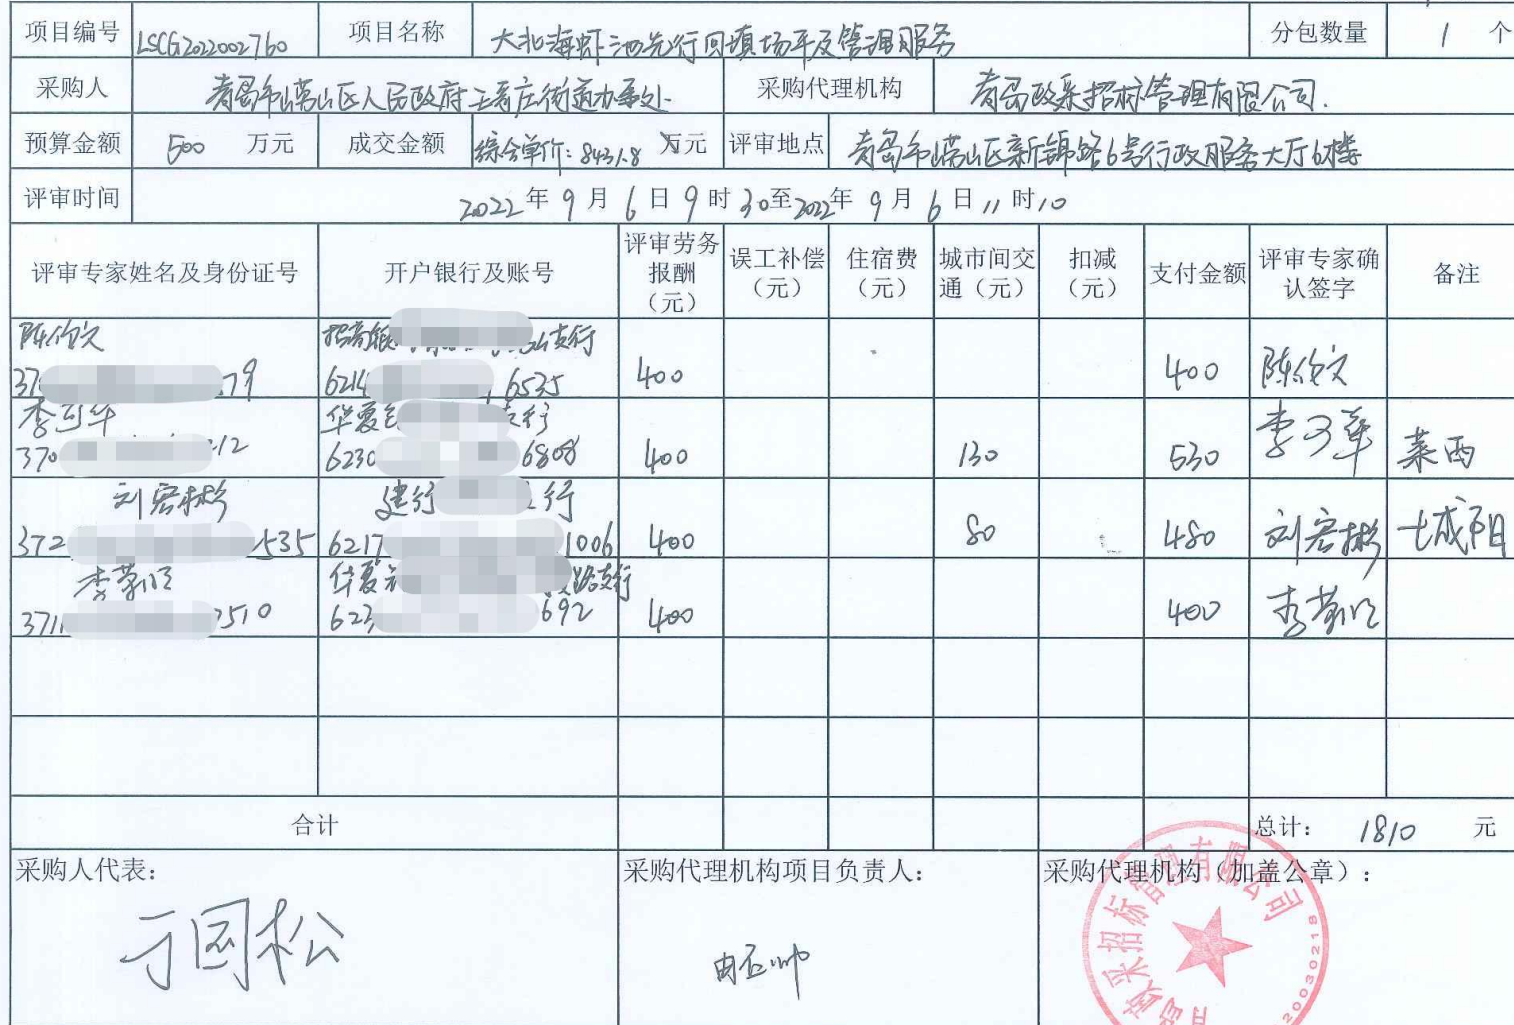 项目编号 LSCG2022002760 项目名称 大北海虾池先行回填场平及管理服务 分包数量 1 个
采购人 青岛市崂山区人民政府王哥庄街道办事处 采购代理机构 青岛政采招标管理有限公司.
预算金额 500 万元 成交金额 综合单价: 8431.8 万元 评审地点 青岛市崂山区新锦路6号行政服务大厅6楼
评审时间 2022年9月6日9时30至2022年9月6日11时10
评审专家姓名及身份证号 开户银行及账号 评审劳务报酬（元） 误工补偿（元） 住宿费（元） 城市间交通（元） 扣减（元） 支付金额 评审专家确认签字 备注
招商银 支行
37 79 6214 6535 400 400
华夏 支行
370 12 6230 6808 400 130 530 莱西
刘宏彬 建行 支行
372 535 6217 1006 400 80 480 刘宏彬 城阳
华夏 路支行
371 2510 623 692 400 400
合计 总计： 1810 元
采购人代表： 采购代理机构项目负责人： 采购代理机构（加盖公章）：
国松
政采招标管理有限公司
20030218